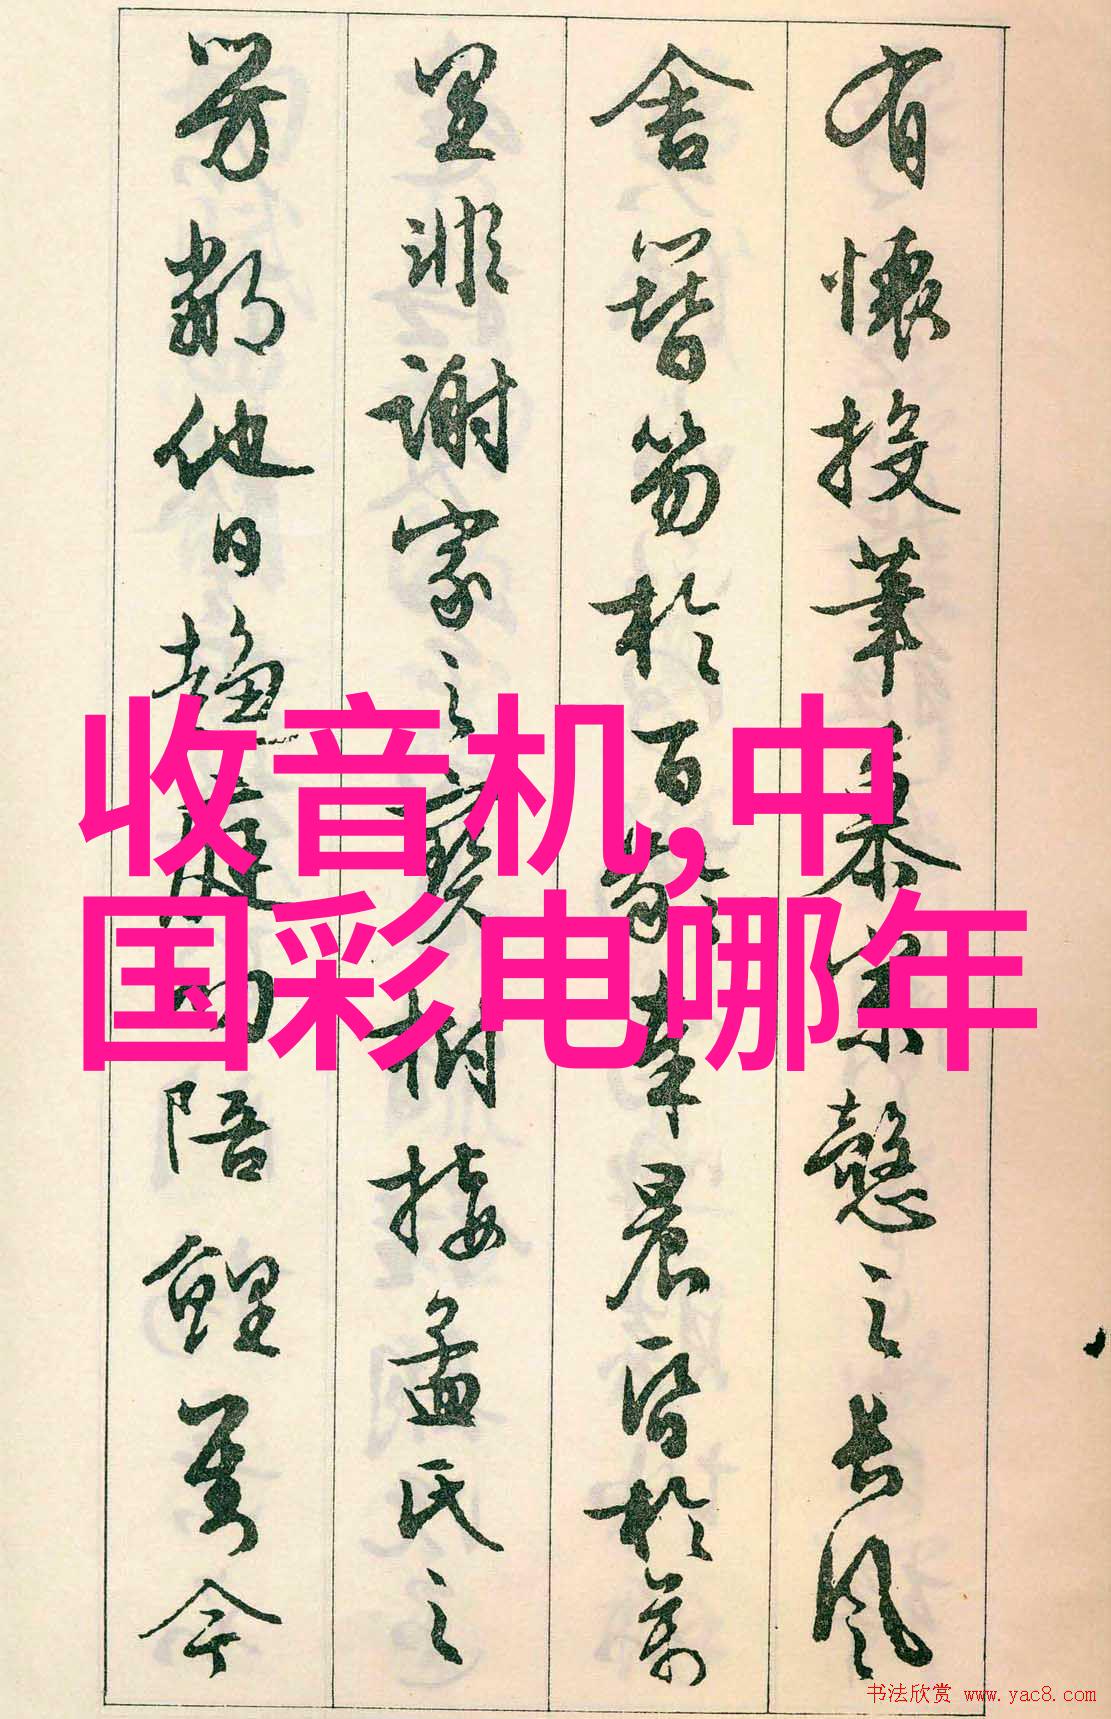 有懷投筆慕宗慤之長風
舍簪笏於百齡奉晨昏於萬
里非謝家之寶樹接孟氏之
芳鄰他日趨庭叨陪鯉對今
收音机,中
国彩电哪年
书法欣赏 www.yac8.com